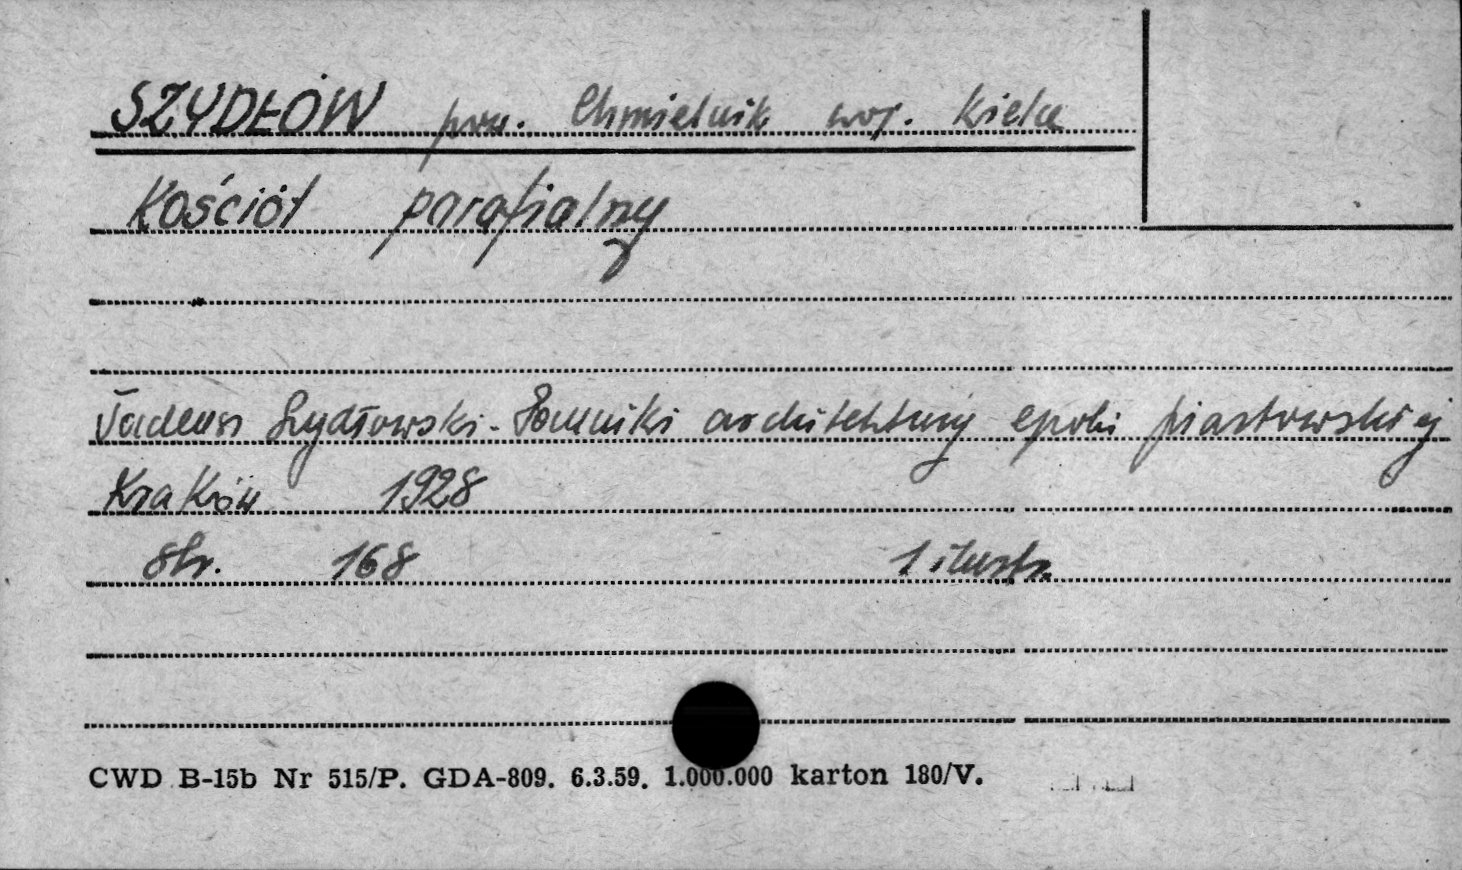 SZYDŁÓW pow. Chmielnik woj. Kielce
Kościół parafialny
Tadeusz Szydłowski - Pomniki architektury epoki piastowskiej
Kraków 1928
str. 168 1 ilustr.
CWD B-15b Nr 515/P. GDA-809. 6.3.59. 1.000.000 karton 180/V.